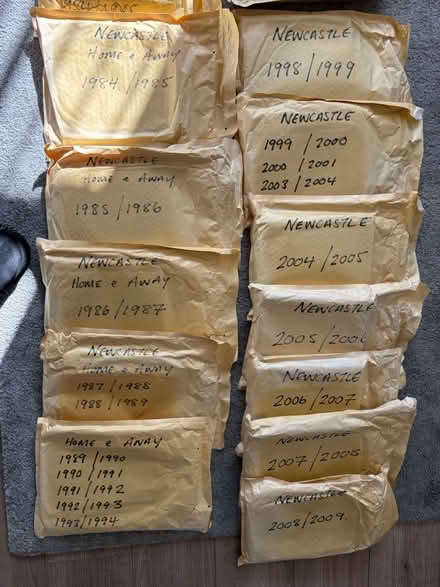 NEWCASTLE
HOME e AWAY
1984/1985
NEWCASTLE
HOME e AWAY
1985/1986
NEWCASTLE
HOME e AWAY
1986/1987
NEWCASTLE
HOME e AWAY
1987/1988
1988/1989
HOME e AWAY
1989/1990
1990/1991
1991/1992
1992/1993
1993/1994
NEWCASTLE
1998/1999
NEWCASTLE
1999/2000
2000/2001
2003/2004
NEWCASTLE
2004/2005
NEWCASTLE
2005/2006
NEWCASTLE
2006/2007
NEWCASTLE
2007/2008
NEWCASTLE
2008/2009.